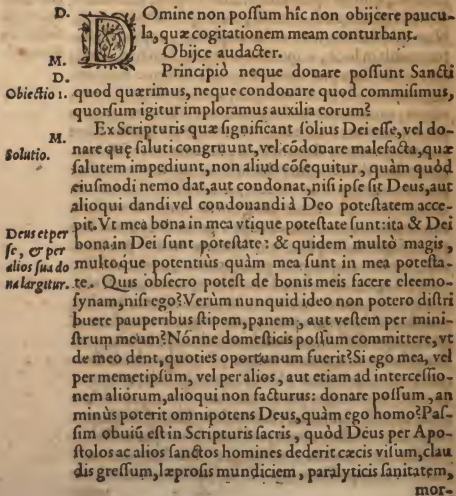 D. DOmine non possum hîc non obijcere paucu-
la, quæ cogitationem meam conturbant.
M. Obijce audacter.
D. Principiò neque donare possunt Sancti
Obiectio 1. quod quærimus, neque condonare quod commisimus,
quorsum igitur imploramus auxilia eorum?
M. Ex Scripturis quæ significant solius Dei esse, vel do-
Solutio. nare quę saluti congruunt, vel cõdonare malefacta, quæ
salutem impediunt, non aliud cõsequitur, quàm quòd
eiusmodi nemo dat, aut condonat, nisi ipse sit Deus, aut
alioqui dandi vel condonandi à Deo potestatem acce-
pit. Vt mea bona in mea vtique potestate sunt: ita & Dei
Deus et per bona in Dei sunt potestate: & quidem multò magis,
se, & per multoque potentiùs quàm mea sunt in mea potesta-
alios sua do te. Quis obsecro potest de bonis meis facere eleemo-
na largitur. synam, nisi ego? Verùm nunquid ideo non potero distri
buere pauperibus stipem, panem, aut vestem per mini-
strum meum? Nónne domesticis possum committere, vt
de meo dent, quoties oportunum fuerit? Si ego mea, vel
per memetipsum, vel per alios, aut etiam ad intercessio-
nem aliorum, alioqui non facturus: donare possum, an
minùs poterit omnipotens Deus, quàm ego homo? Pas-
sim obuiũ est in Scripturis sacris, quòd Deus per Apo-
stolos ac alios sanctos homines dederit cæcis visum, clau
dis gressum, læprosis mundiciem, paralyticis sanitatem,
mor-